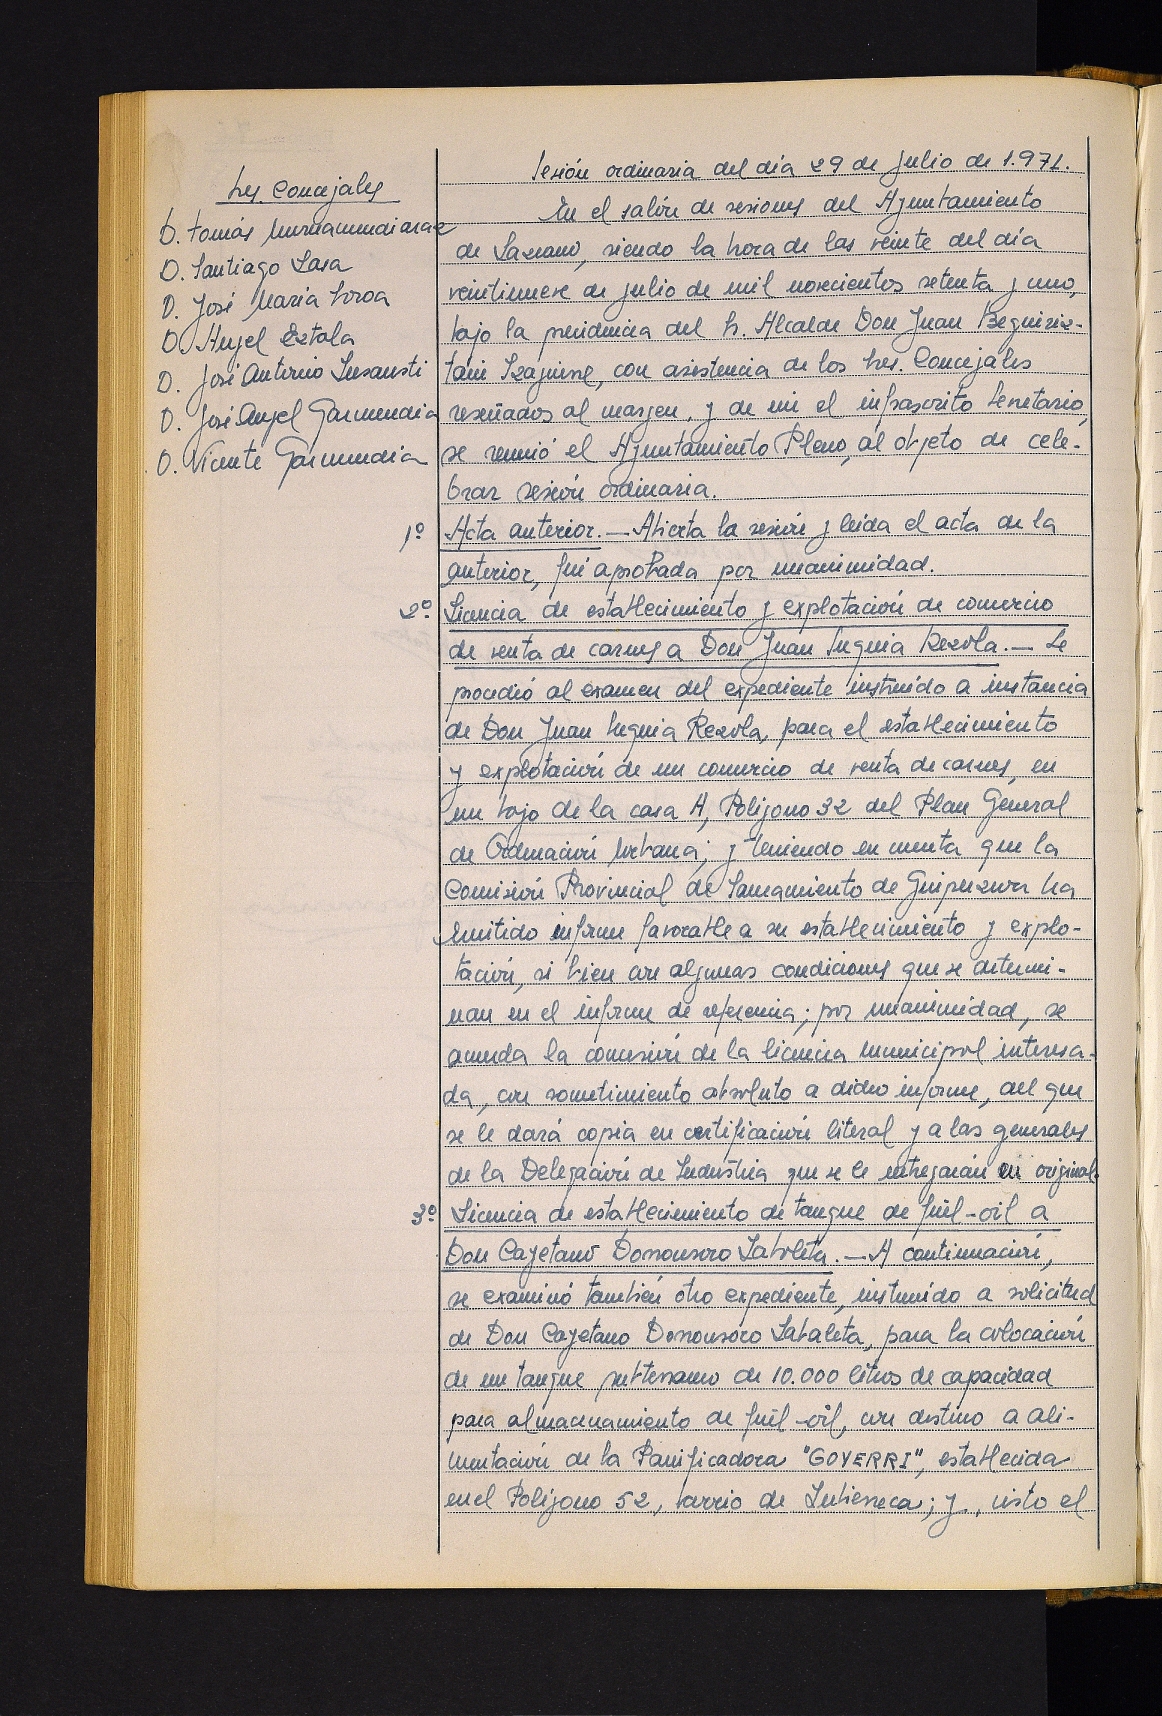 Sres. Concejales
D. Tomás Muruamendiaraz
D. Santiago Lasa
D. José María Soroa
D. Angel Eztala
D. José Antonio Insausti
D. José Angel Garmendia
D. Vicente Garmendia
Sesión ordinaria del día 29 de julio de 1.971.
En el salón de sesiones del Ayuntamiento
de Lazcano, siendo la hora de las veinte del día
veintinueve de julio de mil novecientos setenta y uno,
bajo la presidencia del Sr. Alcalde Don Juan Beguiriz-
tain Izaguirre, con asistencia de los Sres. Concejales
reseñados al margen, y de mi el infrascrito Secretario,
se reunió el Ayuntamiento Pleno, al objeto de cele-
brar sesión ordinaria.
1º Acta anterior.— Abierta la sesión y leida el acta de la
anterior, fué aprobada por unanimidad.
2º Licencia de establecimiento y explotación de comercio
de venta de carnes a Don Juan Inguia Rezola.— Se
procedió al examen del expediente instruido a instancia
de Don Juan Rezola, para el establecimiento
y explotación de un comercio de venta de carnes, en
un bajo de la casa A, Polígono 32 del Plan General
de Ordenación Urbana; y teniendo en cuenta que la
Comisión Provincial de Saneamiento de Guipuzcoa ha
emitido informe favorable a su establecimiento y explo-
tación, si bien con algunas condiciones que se determi-
nan en el informe de referencia; por unanimidad, se
acuerda la concesión de la licencia municipal interesa-
da, con sometimiento absoluto a dicho informe, del que
se le dará copia en certificación literal y a las generales
de la Delegación de Industria que se le entregarán en original.
3º Licencia de establecimiento de tanque de fuel-oil a
Don Cayetano Dorronsoro Zabaleta.— A continuación,
se examinó también otro expediente, instruido a solicitud
de Don Cayetano Dorronsoro Zabaleta, para la colocación
de un tanque subterraneo de 10.000 litros de capacidad
para almacenamiento de fuel-oil, con destino a ali-
mentación de la Panificadora "GOYERRI", establecida
en el Polígono 52, barrio de; y, visto el